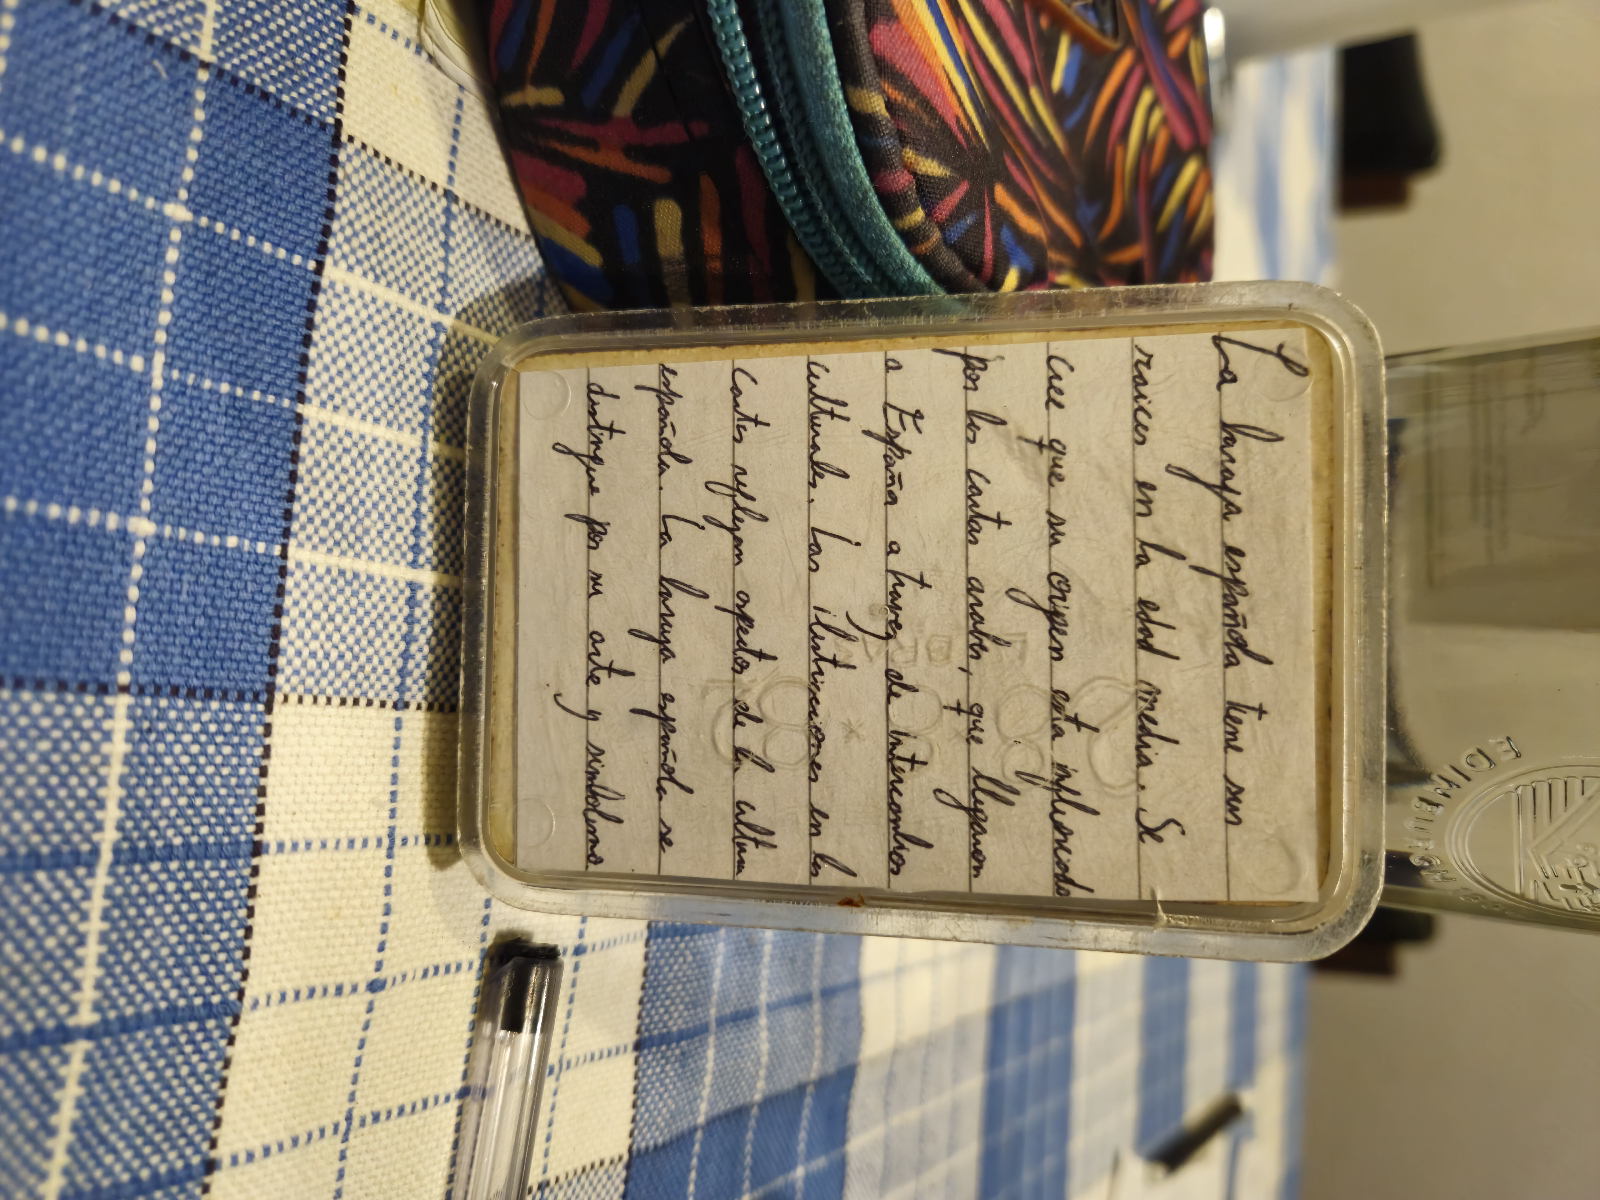 La baraja española tiene sus
raices en la edad media. Se
cree que su origen esta influenciado
por las cartas arabes, que llegaron
a España a traves de intercambios
culturales. Las ilustraciones en las
cartas reflejan aspectos de la cultura
española. La baraja española se
distingue por su arte y simbolismo
EDINBURGH